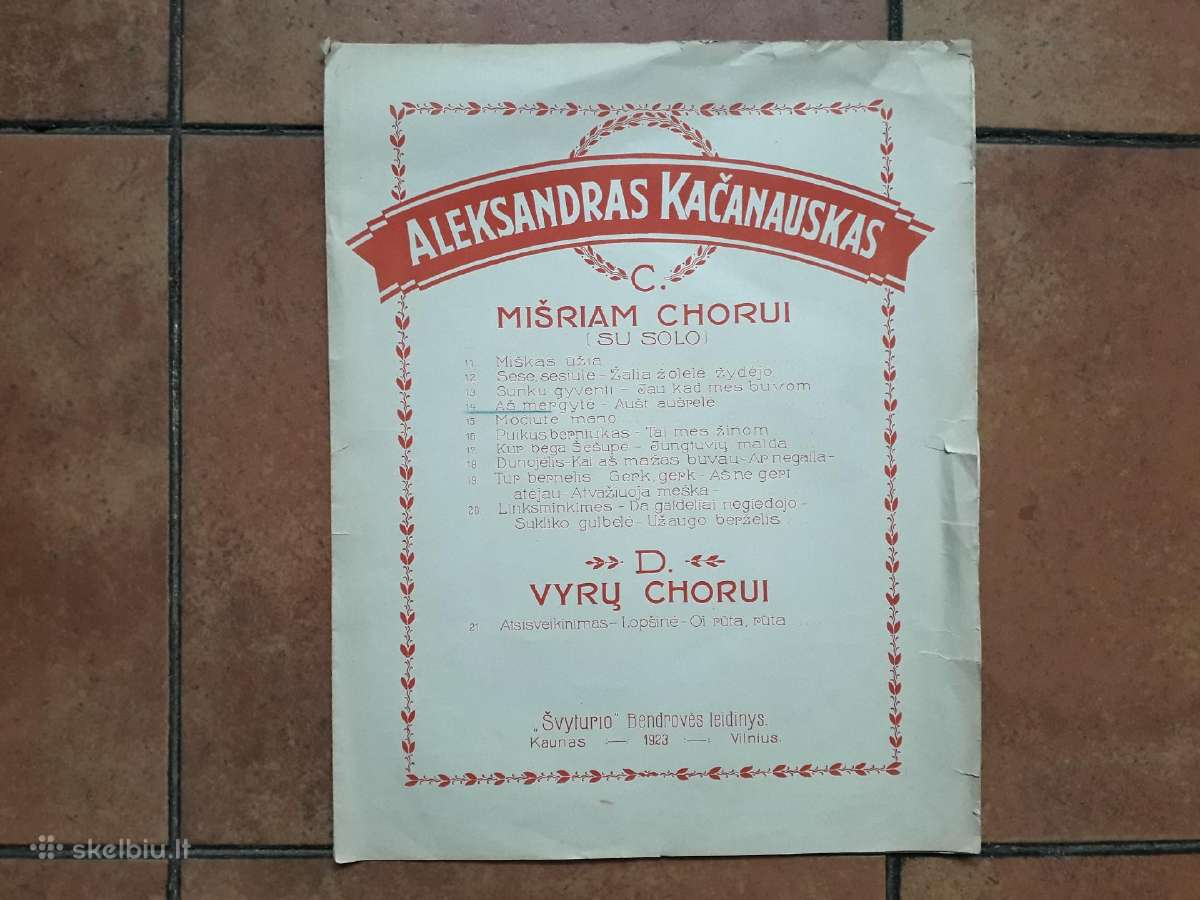 ALEKSANDRAS KAČANAUSKAS
C.
MIŠRIAM CHORUI
(SU SOLO)
11. Miškas ūžia
12. Sesė, sesiulė - Žalia žolelė žydėjo
13. Sunku gyventi - Jau kad mes buvom
14. Aš mergytė - Aušt aušrelė
15. Močiutė mano
16. Puikus berniukas - Tai mes žinom
17. Kur bėga Šešupė - Jungtuvių malda
18. Dunojėlis - Kai aš mažas buvau - Ar negaila -
19. Tur bernelis - Gerk, gerk - Aš ne gert
atėjau - Atvažiuoja meška -
20. Linksminkimės - Da gaideliai negiedojo -
Sukliko gulbelė - Užaugo berželis
D.
VYRŲ CHORUI
21. Atsisveikinimas - Lopšinė - Oi rūta, rūta
„Švyturio" Bendrovės leidinys.
Kaunas — 1923 — Vilnius.
skelbiu.lt